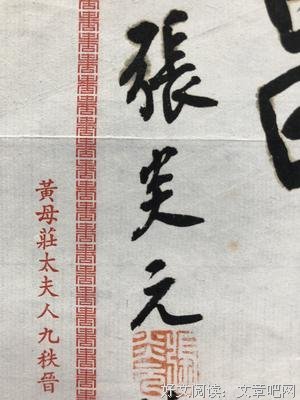 張炎元
黃母莊太夫人九秩晉
好文阅读：文章吧网